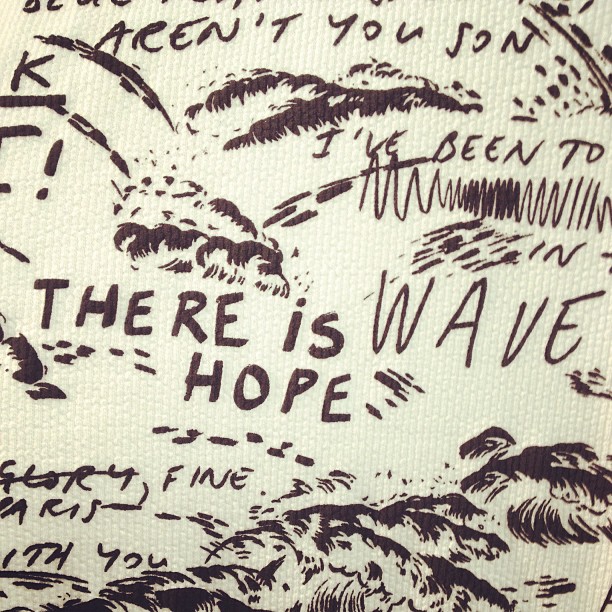 AREN'T YOU SON
K
T!
I'VE BEEN TO
IN
THERE iS WAVE
HOPE
GLORY, FINE
PARIS
WITH YOU